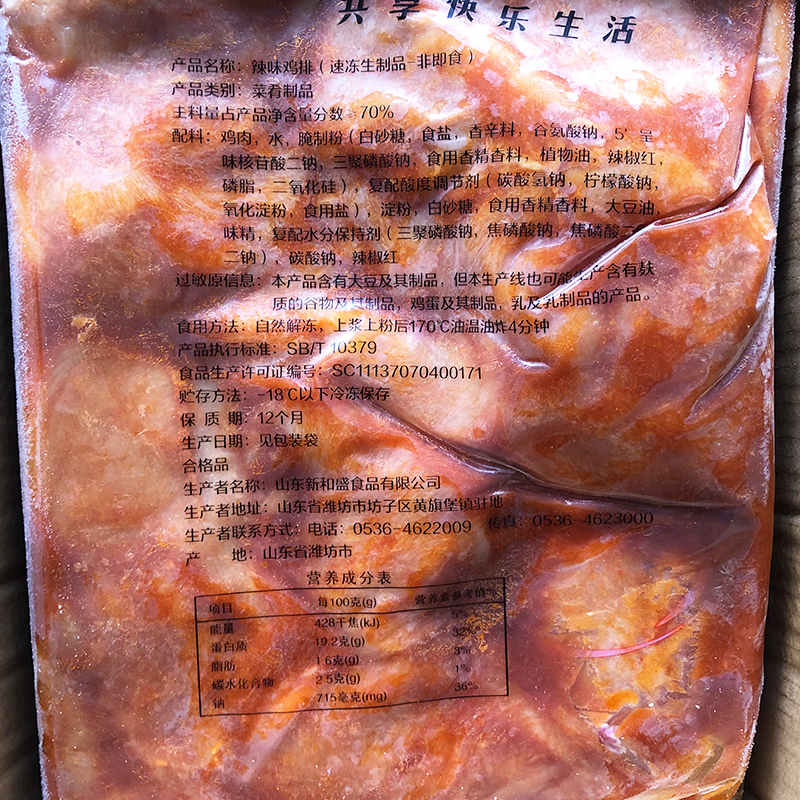 共享快乐生活
产品名称：辣味鸡排（速冻生制品-非即食）
产品类别：菜肴制品
主料量占产品净含量分数≥70%
配料：鸡肉，水，腌制粉（白砂糖，食盐，香辛料，谷氨酸钠，5'-呈
味核苷酸二钠，三聚磷酸钠，食用香精香料，植物油，辣椒红，
磷脂，二氧化硅），复配酸度调节剂（碳酸氢钠，柠檬酸钠，
氧化淀粉，食用盐），淀粉，白砂糖，食用香精香料，大豆油，
味精，复配水分保持剂（三聚磷酸钠，焦磷酸钠，焦磷酸二
二钠）、碳酸钠，辣椒红
过敏原信息：本产品含有大豆及其制品，但本生产线也可能生产含有麸
质的谷物及其制品，鸡蛋及其制品，乳及乳制品的产品。
食用方法：自然解冻，上浆上粉后170℃油温油炸4分钟
产品执行标准：SB/T 10379
食品生产许可证编号：SC11137070400171
贮存方法：-18℃以下冷冻保存
保 质 期：12个月
生产日期：见包装袋
合格品
生产者名称：山东新和盛食品有限公司
生产者地址：山东省潍坊市坊子区黄旗堡镇驻地
生产者联系方式：电话：0536-4622009 传真：0536-4623000
产 地：山东省潍坊市
营养成分表
项目 每100克(g) 营养素参考值%
能量 428千焦(kJ) 5%
蛋白质 19.2克(g) 32%
脂肪 1.6克(g) 3%
碳水化合物 2.5克(g) 1%
钠 715毫克(mg) 36%